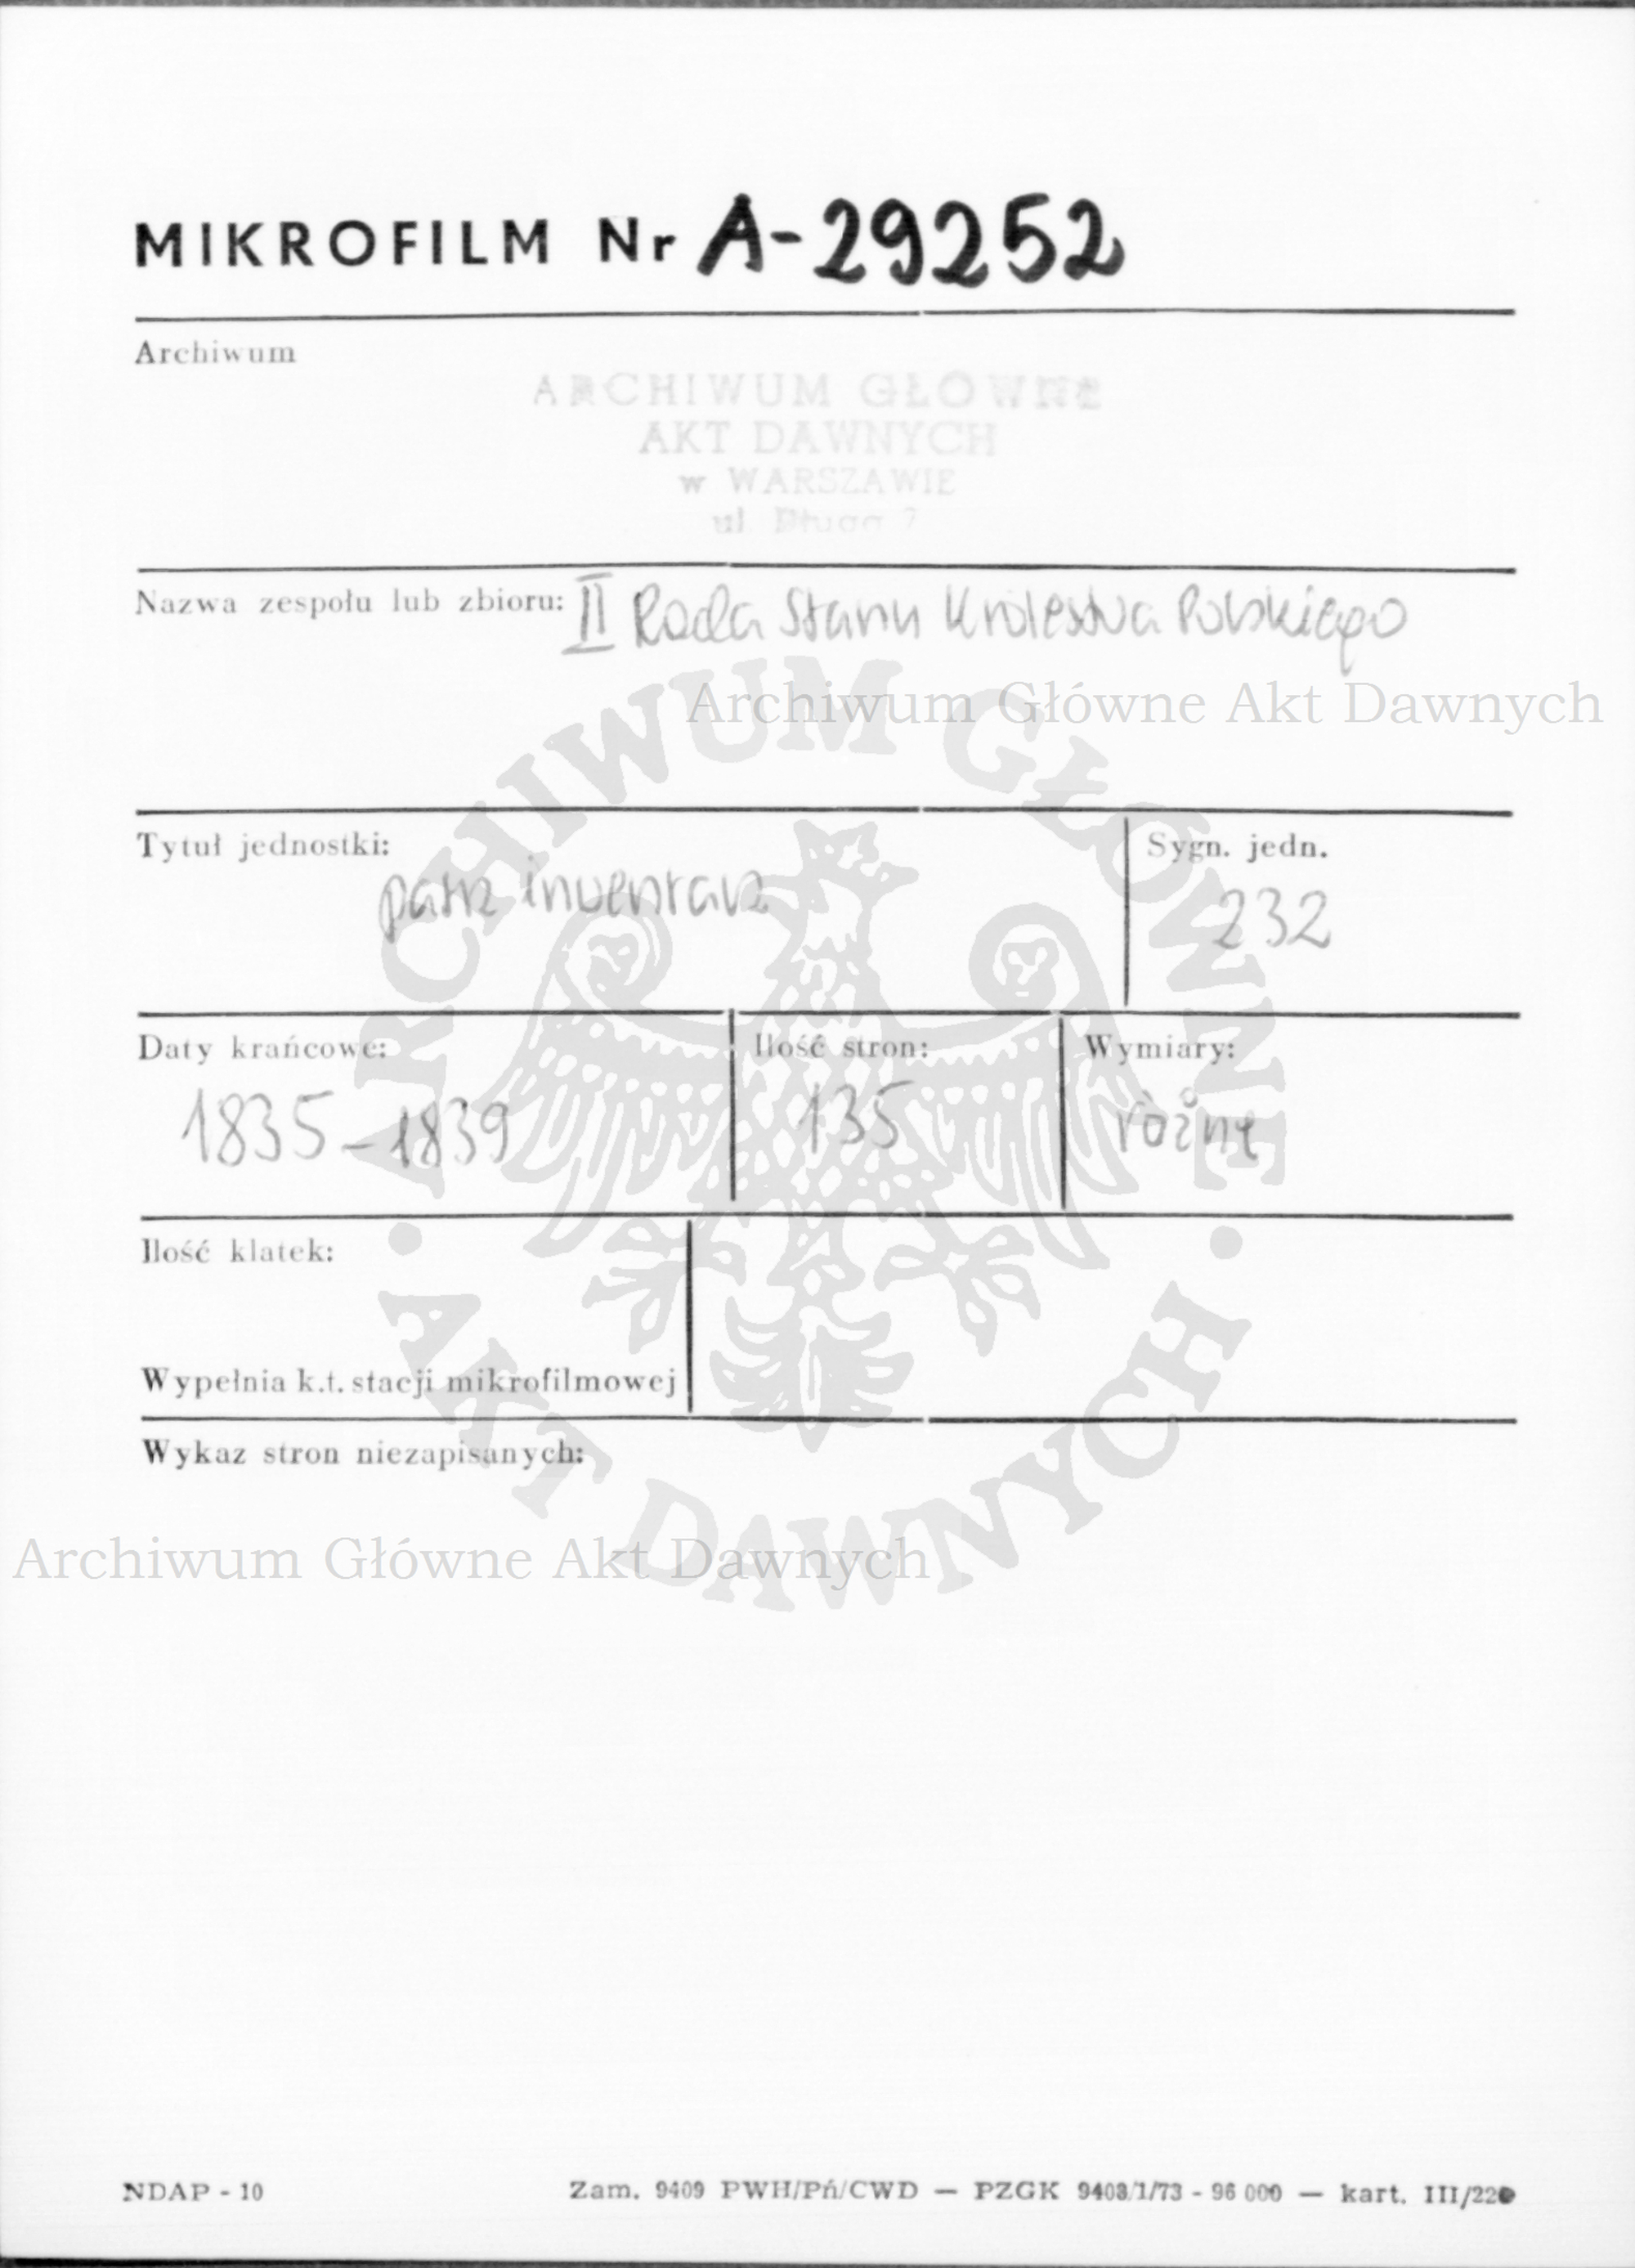 MIKROFILM Nr A-29252
Archiwum
ARCHIWUM GŁÓWNE
AKT DAWNYCH
w WARSZAWIE
ul Długa 7
Nazwa zespołu lub zbioru: II Rada Stanu Królestwa Polskiego
Archiwum Główne Akt Dawnych
ARCHIWUM GŁÓWNE
Tytuł jednostki:
patrz inwentarz
Sygn. jedn.
232
Daty krańcowe:
1835-1839
Ilość stron:
135
Wymiary:
różne
Ilość klatek:
Wypełnia k.t. stacji mikrofilmowej
Wykaz stron niezapisanych:
AKT DAWNYCH
Archiwum Główne Akt Dawnych
NDAP - 10
Zam. 9409 PWH/Pń/CWD — PZGK 9408/1/73 - 96 000 — kart. III/220